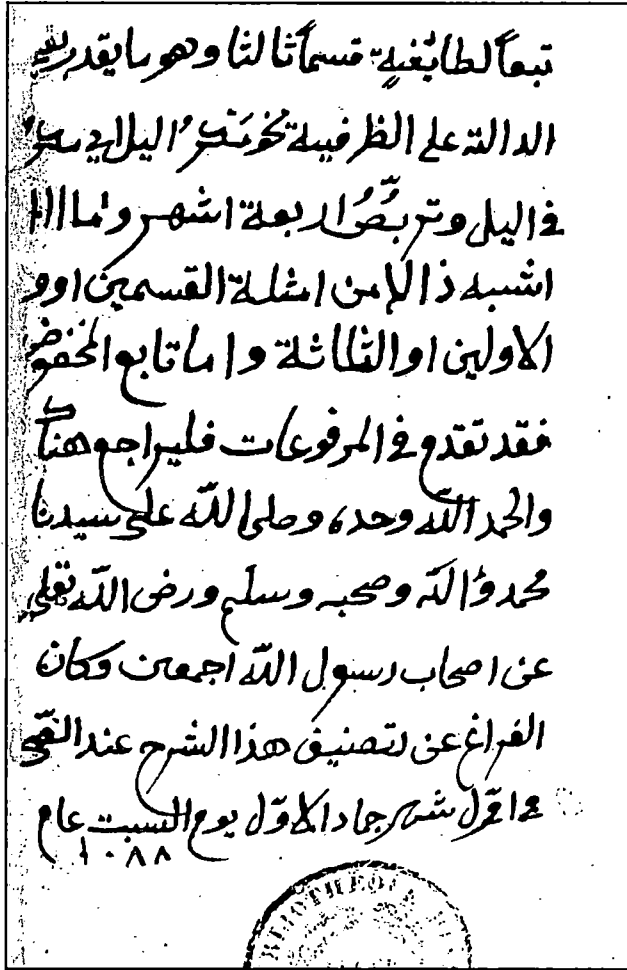 تبعا لطائفة قسما ثالثا وهو ما يقدر بفي
الدالة على الظرفية نحو مكر اليل اي مكر
في اليل وتربص اربعة اشهر واما ااا
اشبه ذالك من امثلة القسمين اوو
الاولين او الثلاثة واما تابع المخفوض
فقد تقدم في المرفوعات فليراجع هناك
والحمد الله وحده وصلى الله على سيدنا
محمد وءاله وصحبه وسلم ورضي الله تعلى
عن اصحاب رسول الله اجمعين وكان
الفراغ عن تصنيف هذا الشرح عند الضحى
في اول شهر جماد الاول يوم السبت عام
١٠٨٨